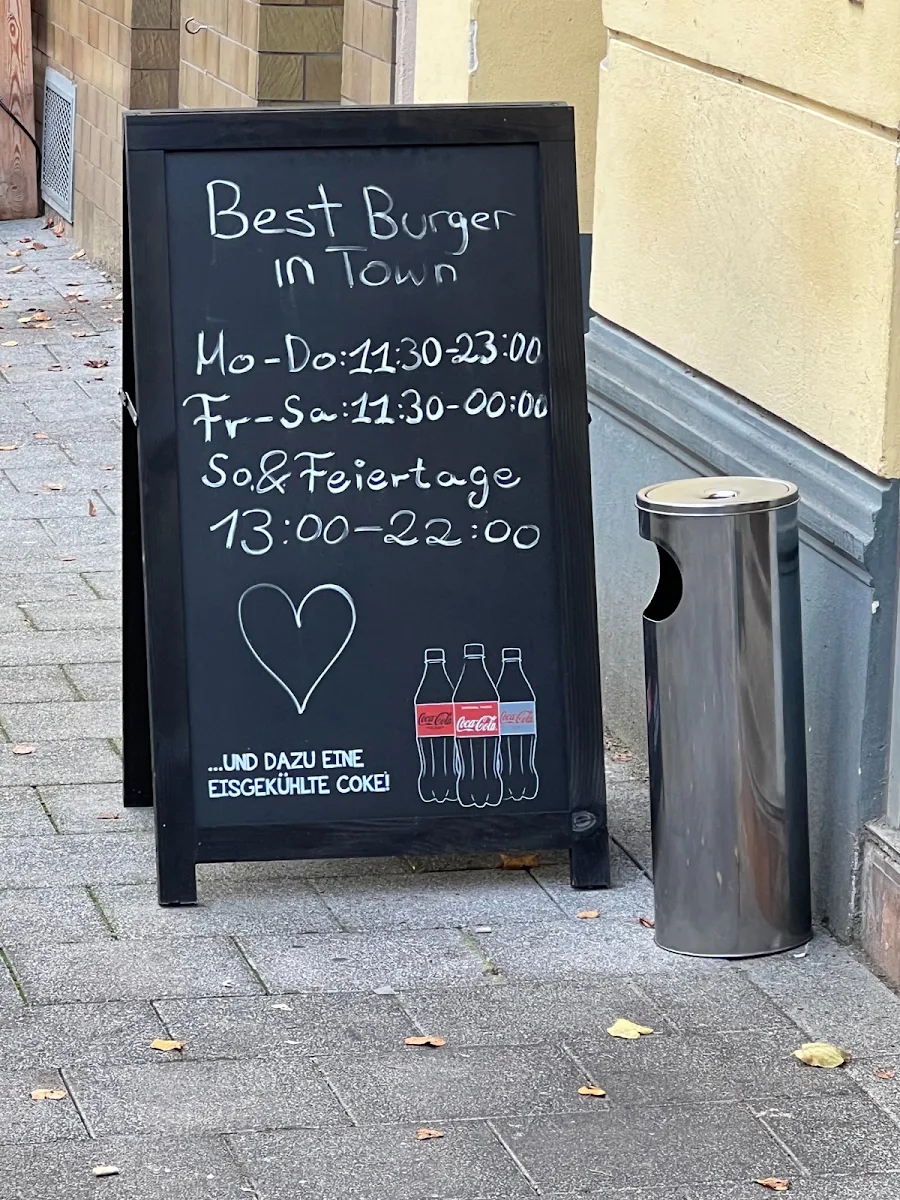 Best Burger
in Town
Mo-Do:11:30-23:00
Fr-Sa:11:30-00:00
So.& Feiertage
13:00-22:00
...UND DAZU EINE
EISGEKÜHLTE COKE!
Coca-Cola
Coca-Cola
Coca-Cola